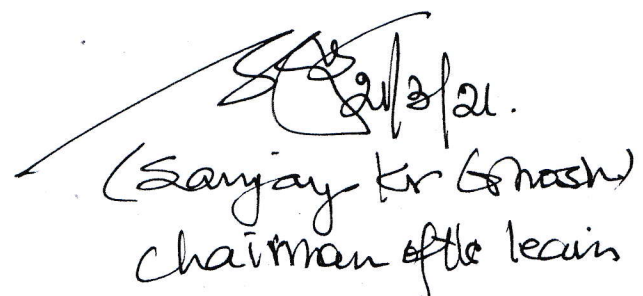 21/3/21.
(Sanjay Kr Ghosh)
chairman of the team